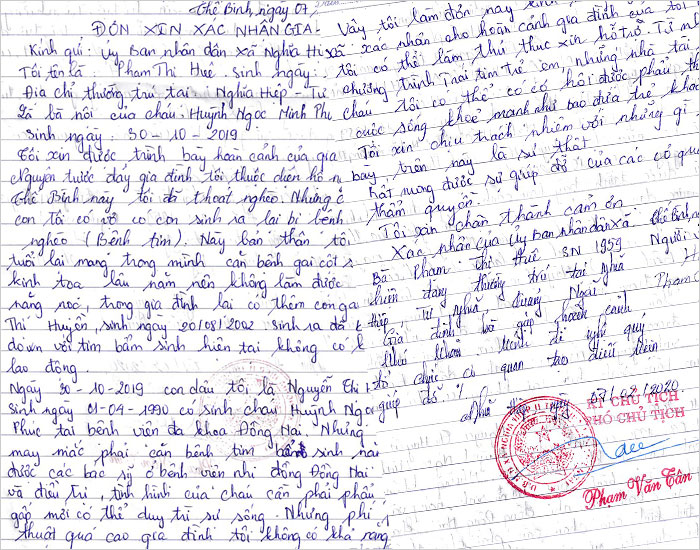 Thế Bình, ngày 07
ĐƠN XIN XÁC NHẬN GIA
Kính gửi: Ủy Ban nhân dân xã Nghĩa Hi
Tôi tên là Phạm Thị Huê sinh ngày:
Địa chỉ thường trú tại Nghĩa Hiệp - Tư
Là bà nội của cháu: Huỳnh Ngọc Minh Phu
Sinh ngày: 30-10-2019
Tôi xin được trình bày hoàn cảnh của gia
Nguyên trước đây gia đình tôi thuộc diện hộ n
Thế Bình nay tôi đã thoát nghèo. Nhưng
con tôi có vợ có con sinh ra lại bị bệnh
nghèo (Bệnh tim). Nay bản thân tôi
tuổi lại mang trong mình căn bệnh gai cột s
kinh tọa lâu năm nên không làm được
nặng nọc, trong gia đình lại có thêm con ga
Thị Huyền, sinh ngày 20/08/2002 sinh ra đã
down với tim bẩm sinh hiện tại không có
lao động.
Ngày 30-10-2019 con dâu tôi là Nguyễn Thị
Sinh ngày 01-04-1990 có sinh cháu Huỳnh Ngọ
Phúc tại bệnh viện đa khoa Đồng Nai. Nhưng
may mắc phải căn bệnh tim bẩm sinh
được các bác sỹ ở bệnh viện nhi đồng Đồng Nai
và điều trị, tình hình của cháu cần phải phẫu
gấp mới có thể duy trì sự sống. Nhưng phí
thuật quá cao gia đình tôi không có khả năng
Vậy tôi làm đơn này kính
xã xác nhận cho hoàn cảnh gia đình của tôi
tôi có thể làm thủ thục xin hỗ trợ. Từ
chương trình Trái tim trẻ em những nhà tài
cháu tôi có thể có cơ hội được phẫu th
cuộc sống khỏe mạnh như bao đứa trẻ khác
Tôi xin chịu trách nhiệm với những gì
bày trên này là sự thật.
Rất mong được sự giúp đỡ của các cơ qua
thẩm quyền.
Tôi xin chân thành cảm ơn
Xác nhận của Ủy Ban Nhân Dân Xã
Thế Bình, n
Bà Phạm Thị Huê SN 1959
Người
hiện đang thường trú tại Nghĩa
Hiệp, Tư Nghĩa, Quảng Ngãi
Phạm
Gia đình bà gặp hoàn cảnh
khó khăn kính đề nghị quý
tổ chức cơ quan tạo điều kiện
giúp đỡ./.
Nghĩa Hiệp, ngày 07/02/2020
KT CHỦ TỊCH
PHÓ CHỦ TỊCH
Phạm Văn Tân